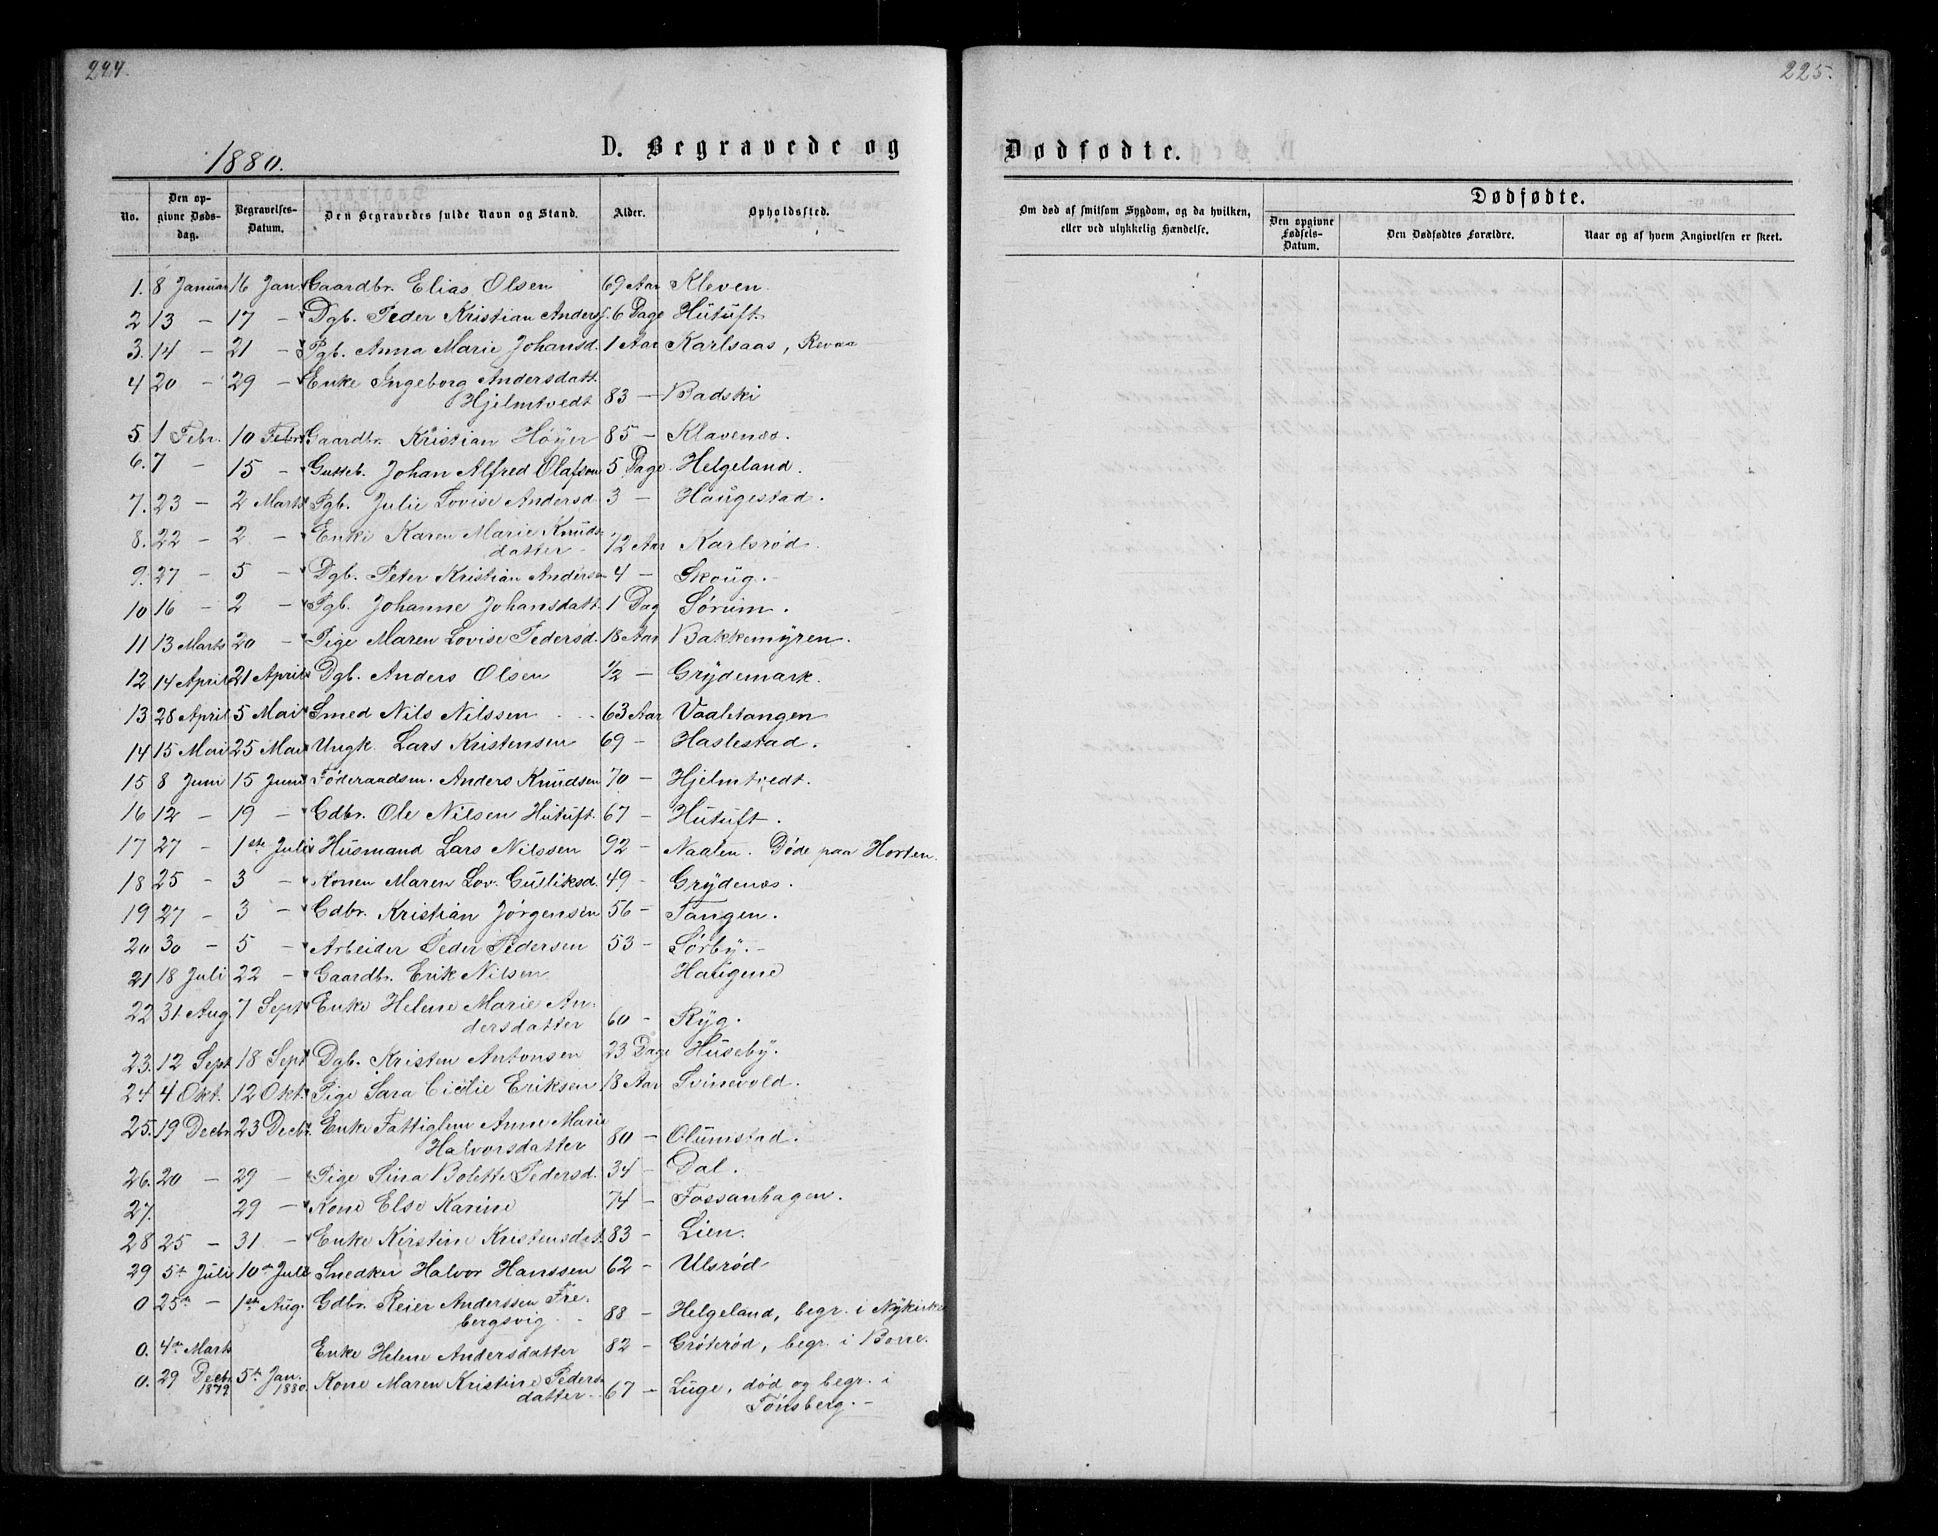 224.
1880.
D. Begravede og
No.
Den opgivne Dødsdag.
Begravelses-Datum.
Den Begravedes fulde Navn og Stand.
Alder.
Opholdssted.
1. 8 Januar 16 Jan. Gaardbr. Elias Olsen 69 Aar Kleven.
2 13 — 17 — Dgb. Peder Kristian Anders. 6 Dage Hutuft.
3. 14 — 21 — Pgb. Anna Marie Johansd. 1 Aar Karlsaas,
4 20 — 29 — Enke Ingeborg Andersdatt.
Hjelmtvedt 83 — Badski
5 1 Febr. 10 Febr. Gaardbr. Kristian Höyer 85 — Klavenæs.
6. 7 — 15 — Gutteb. Johan Alfred Olafsen 5 Dage Helgeland.
7. 23 — 2 Marts Pgb. Julie Lovise Andersd. 3 — Haugestad.
8. 22 — 2 — Enke Karen Marie Knuds-
datter — 72 Aar Karlsrød.
9. 27 — 5 — Dgb. Peter Kristian Andersen 4 — Skoug. —
10 16 — 2 — Pgb. Johanne Johansdatt. 1 Dag Sørum.
11 13 Marts 20 — Pige Maren Lovise Pedersd. 18 Aar Bakkemyren.
12 14 April 21 April Dgb. Anders Olsen ½ — Grydemark.
13 28 April 5 Mai Smed Nils Nilssen 63 Aar Vaaletangen
14 15 Mai 25 Mai Ungk. Lars Kristensen 69 — Haslestad.
15 8 Juni 15 Juni Föderaadsm. Anders Knudsen 70 — Hjelmtvedt.
16 12 — 19 — Gdbr. Ole Nilsen Hutuft. 67 — Hutuft.
17 27 — 1ste Juli Husmand Lars Nilssen 92 — Naalen. Døde paa Horten.
18 25 — 3 — Konen Maren Lov. Gulliksd. 49 — Grydenæs.
19 27 — 3 — Gdbr. Kristian Jørgensen 56 — Tangen.
20 30 — 5 — Arbeider Peder Pedersen 53 — Sørby. —
21 18 Juli 22 — Gaardbr. Erik Nilsen Haugene
22 31 Aug. 7 Sept Enke Helene Marie An-
dersdatter 60 — Ryg.
23. 12 Sept 18 Sept Dgb. Kristen Antonsen 23 Dage Huseby.
24 4 Okt. 12 Okt. Pige Sara Cicilie Eriksen 18 Aar Svinevold.
25. 19 Decbr. 23 Decbr. Enke Fattiglem Anne Marie
Halvorsdatter 80 — Olumstad.
26. 20 — 29 — Pige Sina Bolette Pedersd. 34 — Dal.
27. 29 — Kone Else Karine 74 — Fossanhagen.
28 25 — 31 — Enke Kirstine Kristensdat. 83 — Lien.
29 5te Juli 10de Juli Snedker Halvor Hanssen 62 — Ulsrød
0 25de — 1ste Aug. Gdbr. Reier Anderssen Fre-
bergsvig 88 — Helgeland, begr. i Nykirke
0. 4de Marts Enke Helene Andersdatter 82 — Gröteröd, begr. i Borre.
0. 29 Decbr. 1879 5te Jan. 1880. Kone Maren Kristine Peders-
datter 67 — Luge, død og begr. i
Tönsberg. —
225.
Dødfødte.
Om død af smitsom Sygdom, og da hvilken, eller ved ulykkelig Hændelse.
Dødfødte.
Den opgivne Fødsels-Datum.
Den Dødfødtes Forældre.
Naar og af hvem Angivelsen er skeet.